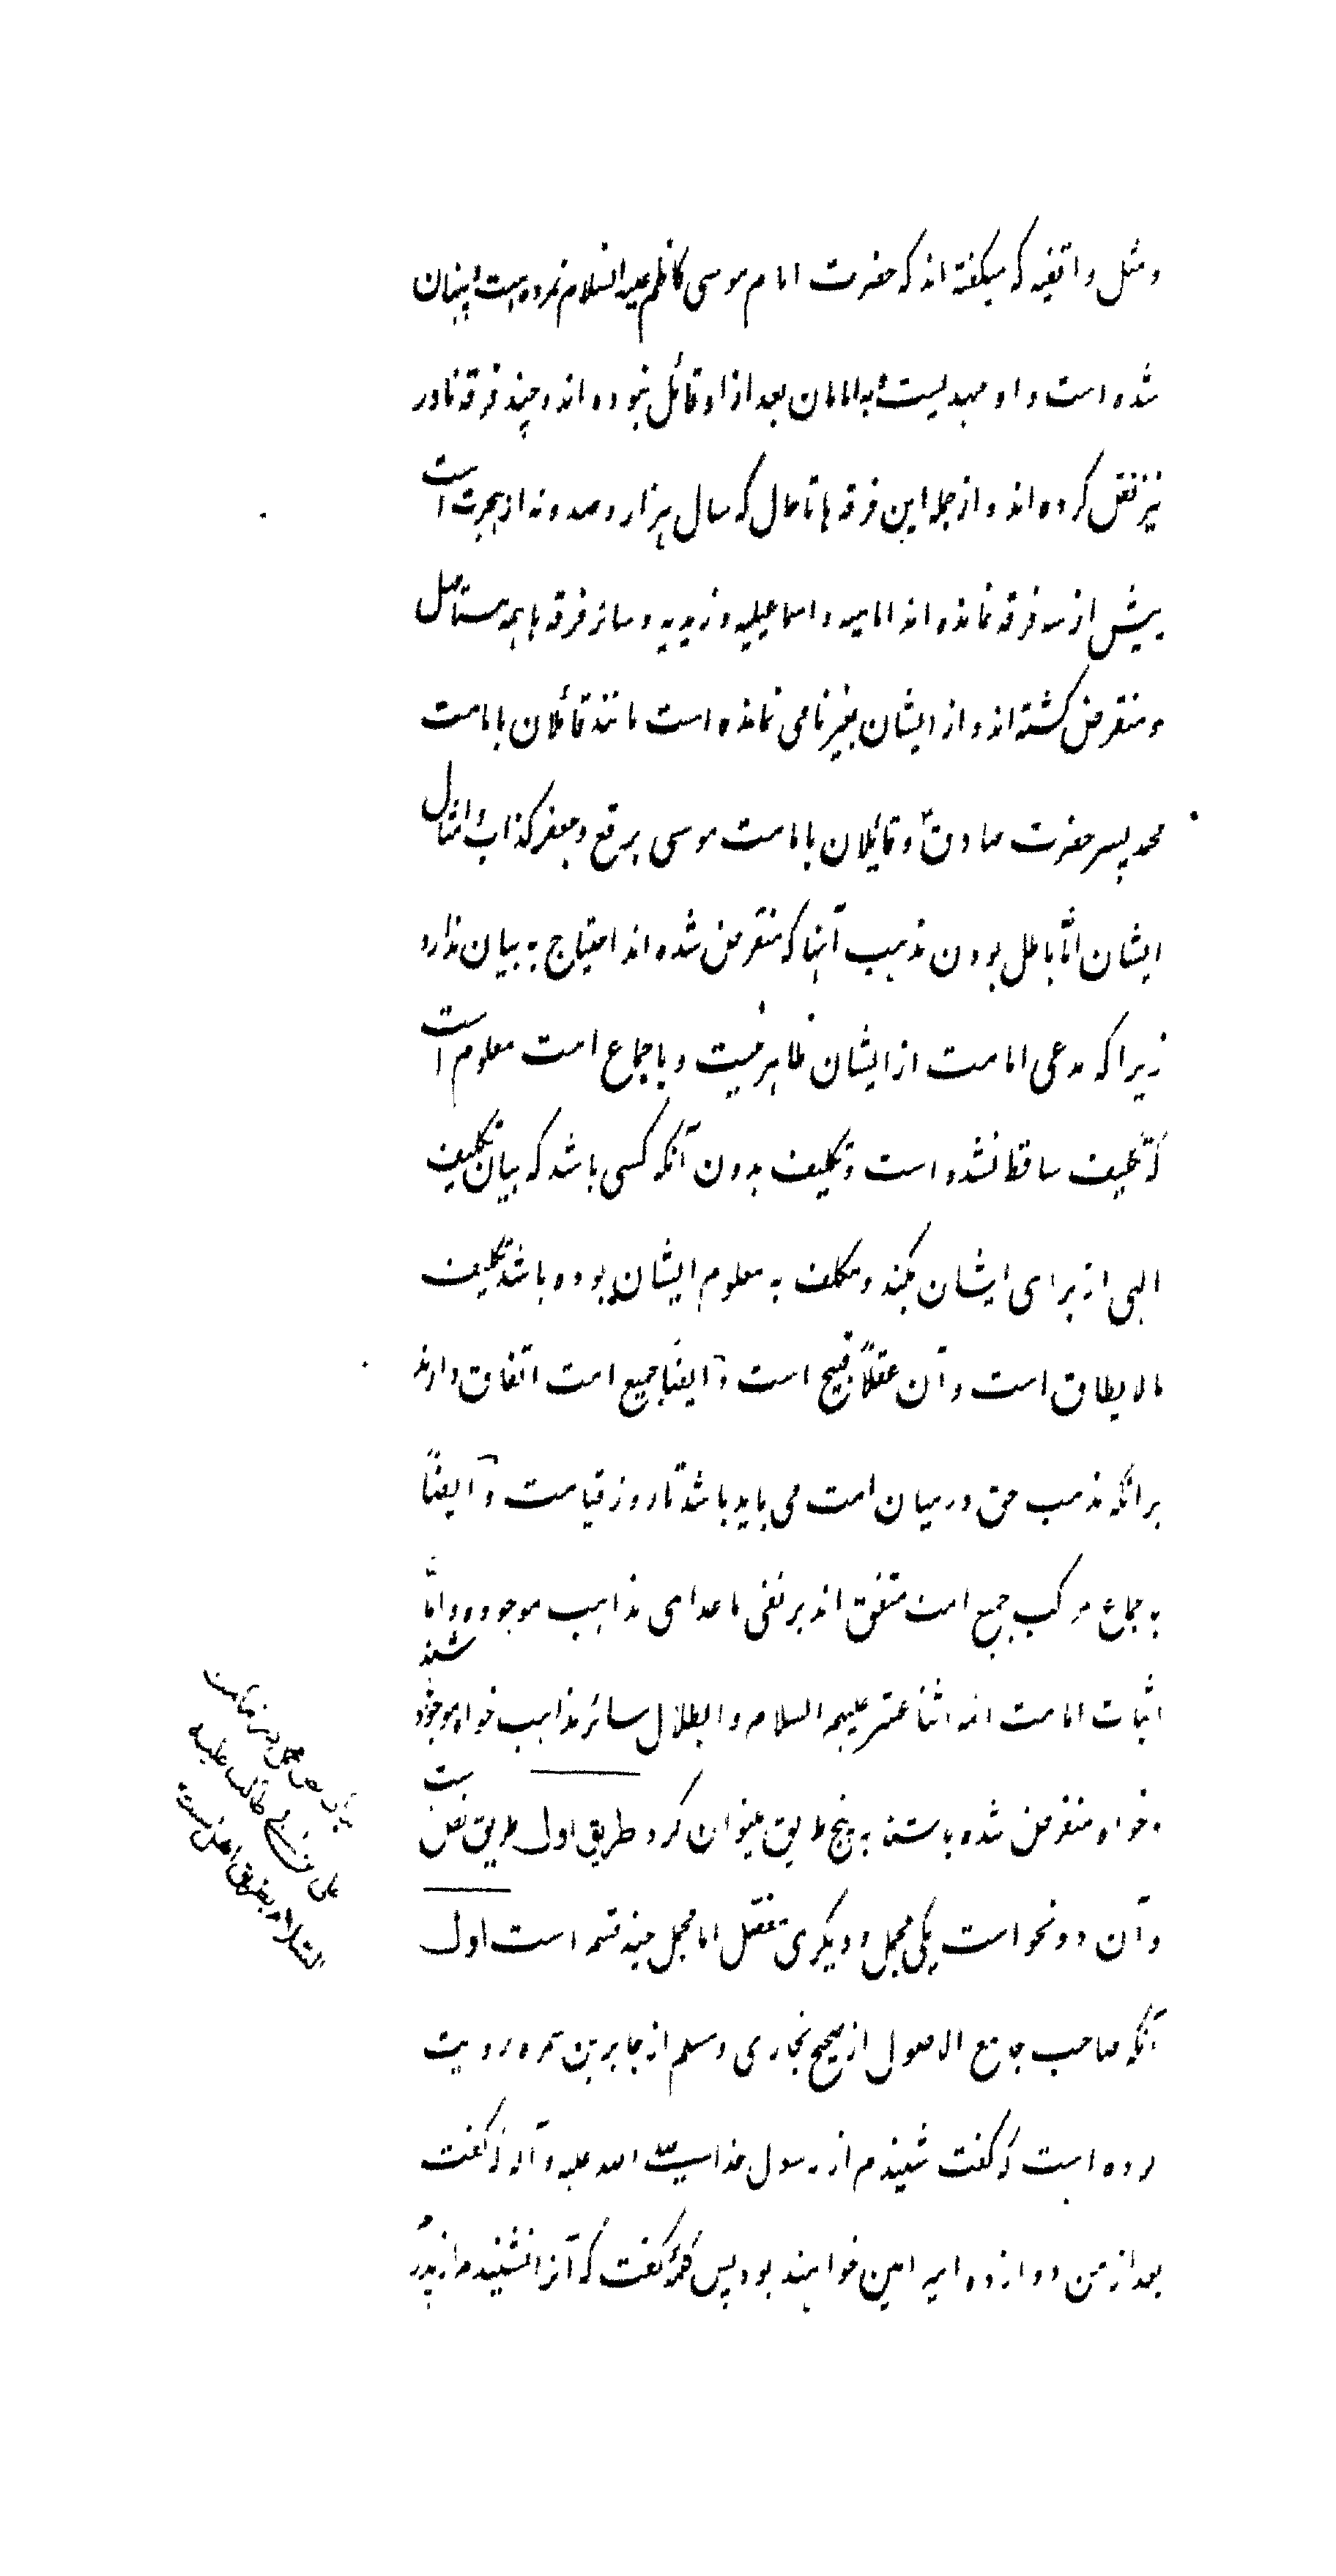 و مثل واقفیه که میکفته اند که حضرت امام موسی کاظم علیه السلام نمرده است و پنهان
شده است و او مهدیست و به امامان بعد از او قائل نبوده اند و چند فرقه نادر
نیز نقل کرده اند و از جمله این فرقه ها تا حال که سال هزار و صد و نه از هجرت است
بیش از سه فرقه نمانده اند امامیه و اسماعیلیه و زیدیه و سائر فرقه ها همه مستأصل
و منقرض کشته اند و از ایشان بغیر نامی نمانده است مانند قائلان بامامت
محمد پسر حضرت صادق و قائلان بامامت موسی برقع و جعفر کذاب و امثال
ایشان امّا باطل بودن مذهب آنها که منقرض شده اند احتیاج به بیان ندارد
زیرا که مدعی امامت از ایشان ظاهر نیست و باجماع امت معلوم است
که تکلیف ساقط نشده است و تکلیف بدون آنکه کسی باشد که بیان تکلیف
الهی از برای ایشان بکند و مکلف به معلوم ایشان بوده باشد تکلیف
مالایطاق است و آن عقلاً قبیح است و ایضاً جمیع امت اتفاق دارند
برانکه مذهب حق در میان امت می باید باشد تا روز قیامت و ایضاً
به جماع مرکب جمیع امت متفق اند بر نفی ماعدای مذاهب موجوده و امّا
اثبات امامت ائمه اثنا عشر علیهم السلام و ابطال سائر مذاهب خواه موجود شند
و خواه منقرض شده باشند به پنج طریق میتوان کرد طریق اول طریق نص ست
و آن دو نحو است یکی مجمل و دیکری مفصل اما مجمل چند قسم است اول
آنکه صاحب جامع الاصول از صحیح بخاری و مسلم از جابر بن سمره روایت
کرده است که کفت شنیدم از رسول خدا صلی الله علیه و آله که کفت
بعد از من دوازده امیر امین خواهند بود پس کلمهٔ کفت که آنرا نشنیدم از پدر
علی بن ابی طالب علیه
السلام بطریق اهل سنت